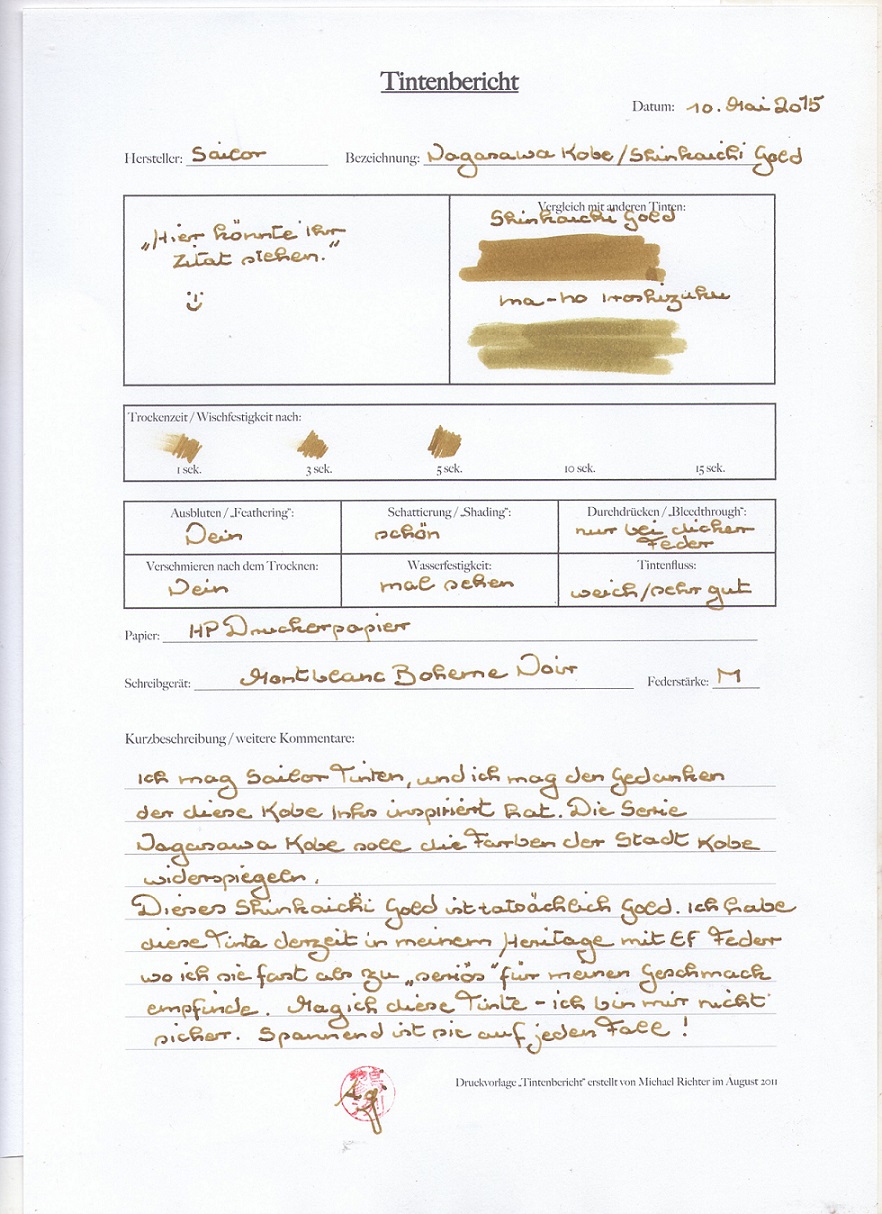 Tintenbericht
Datum: 10. Mai 2015
Hersteller: Sailor Bezeichnung: Nagasawa Kobe/Shinkaichi Gold
„Hier könnte Ihr
Zitat stehen.“
Vergleich mit anderen Tinten:
Shinkaichi Gold
ina-ho Iroshizuku
Trockenzeit / Wischfestigkeit nach:
1 sek. 3 sek. 5 sek. 10 sek. 15 sek.
Ausbluten / „Feathering“: Schattierung / „Shading“: Durchdrücken / „Bleedthrough“:
Nein schön nur bei dicker
Feder
Verschmieren nach dem Trocknen: Wasserfestigkeit: Tintenfluss:
Nein mal sehen weich/sehr gut
Papier: HP Druckerpapier
Schreibgerät: Montblanc Boheme Noir Federstärke: M
Kurzbeschreibung / weitere Kommentare:
Ich mag Sailor Tinten, und ich mag den Gedanken
der diese Kobe Inks inspiriert hat. Die Serie
Nagasawa Kobe soll die Farben der Stadt Kobe
widerspiegeln.
Dieses Shinkaichi Gold ist tatsächlich Gold. Ich habe
diese Tinte derzeit in meinem Heritage mit EF Feder
wo ich sie fast als zu „seriös“ für meinen Geschmack
empfinde. Mag ich diese Tinte - ich bin mir nicht
sicher. Spannend ist sie auf jeden Fall!
Druckvorlage „Tintenbericht“ erstellt von Michael Richter im August 2011